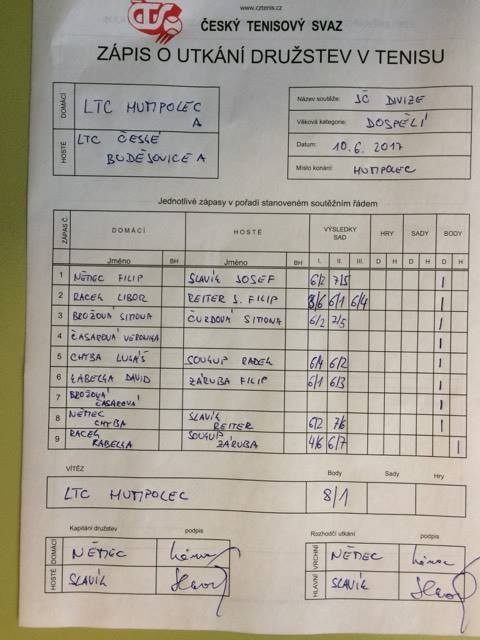 www.cztenis.cz
ČTS
ČESKÝ TENISOVÝ SVAZ
ZÁPIS O UTKÁNÍ DRUŽSTEV V TENISU
DOMÁCÍ LTC HUMPOLEC
A
HOSTÉ LTC ČESKÉ
BUDĚJOVICE A
Název soutěže: JČ DIVIZE
Věková kategorie: DOSPĚLÍ
Datum: 10.6.2017
Místo konání: HUMPOLEC
Jednotlivé zápasy v pořadí stanoveném soutěžním řádem
ZÁPAS Č. DOMÁCÍ HOSTÉ VÝSLEDKY SAD HRY SADY BODY
Jméno BH Jméno BH I. II. III. D H D H D H
1 NĚMEC FILIP SLAVÍK JOSEF 6/2 7/5 1
2 RACEK LIBOR REITER J. FILIP 3/6 6/1 6/4 1
3 BROŽOVÁ SIMONA ČURDOVÁ SIMONA 6/2 7/5 1
4 ČASAROVÁ VERONIKA 1
5 CHYBA LUKÁŠ SOUKUP RADEK 6/4 6/2 1
6 KABELKA DAVID ZÁRUBA FILIP 6/1 6/3 1
7 BROŽOVÁ ČASAROVÁ 1
8 NĚMEC CHYBA SLAVÍK REITER 6/2 7/6 1
9 RACEK KABELKA SOUKUP ZÁRUBA 4/6 6/7 1
VÍTĚZ Body Sady Hry
LTC HUMPOLEC 8/1
Kapitáni družstev podpis
DOMÁCÍ NĚMEC
HOSTÉ SLAVÍK
Rozhodčí utkání podpis
VRCHNÍ NĚMEC
HLAVNÍ SLAVÍK